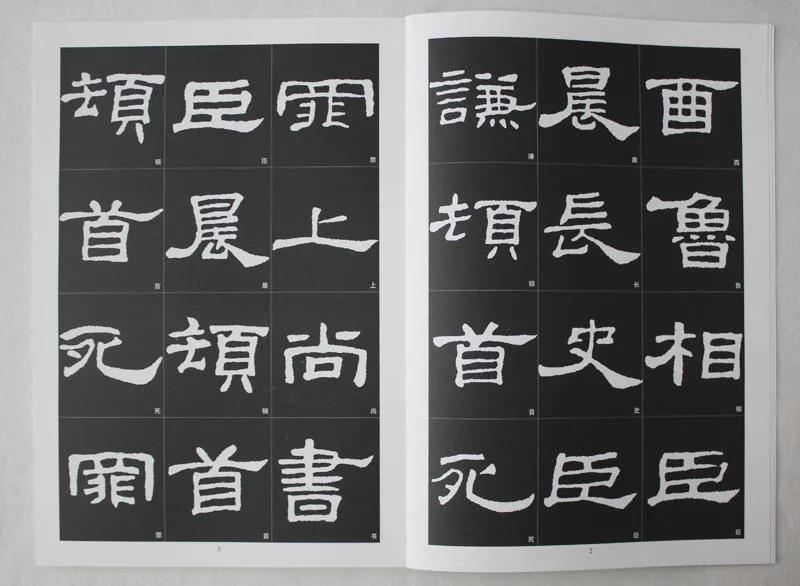 酉魯相臣
酉鲁相臣
晨長史臣
晨长史臣
謙頓首死
谦顿首死
2
罪上尚書
罪上尚书
臣晨頓首
臣晨顿首
頓首死罪
顿首死罪
3